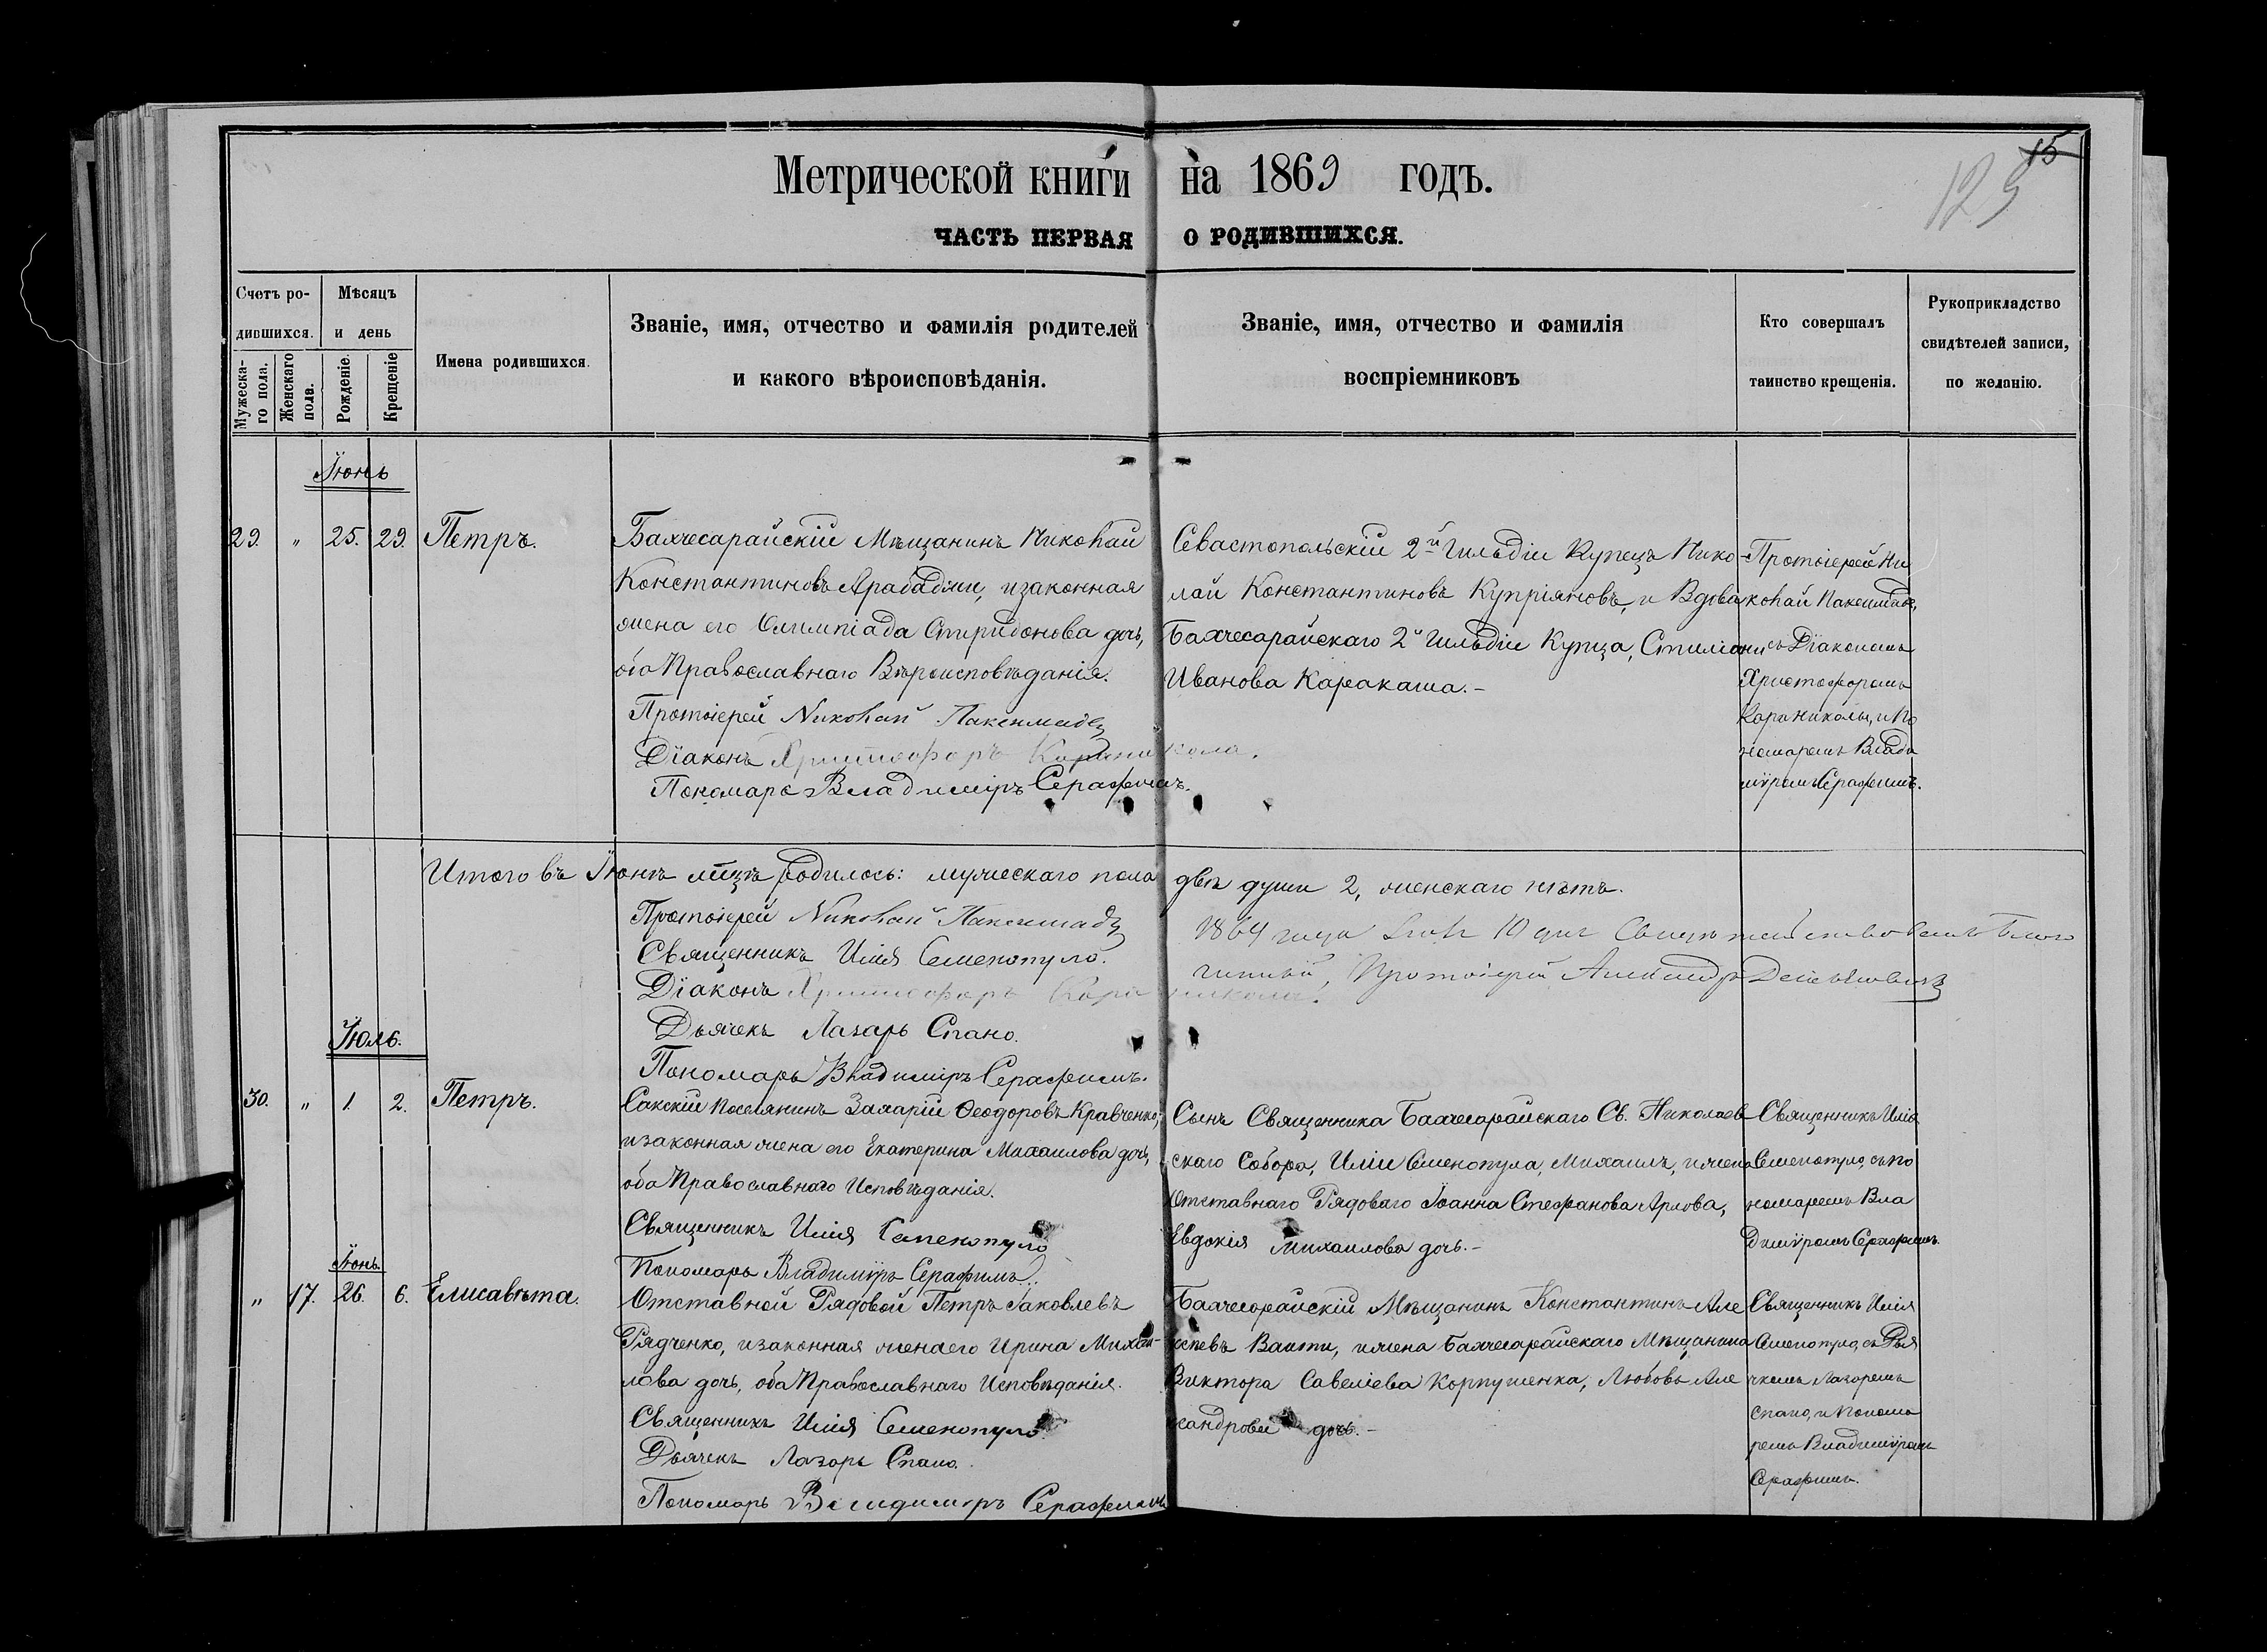 Метрической книги на 1869 годъ.
15
129
ЧАСТЬ ПЕРВАЯ О РОДИВШИХСЯ.
Счетъ ро-
дившихся.
Мужеска-
го пола.
Женскаго
пола.
Мѣсяцъ
и день
Рожденіе.
Крещеніе
Имена родившихся.
Званіе, имя, отчество и фамилія родителей
и какого вѣроисповѣданія.
Званіе, имя, отчество и фамилія
воспріемниковъ
Кто совершалъ
таинство крещенія.
Рукоприкладство
свидѣтелей записи,
по желанію.
Іюнь
29. " 25. 29. Петръ.
Бахчесарайскій Мѣщанинъ Николай
Константиновъ Арабаджи, и законная
жена его Олимпіада Спиридонова дочь,
оба Православнаго Вѣроисповѣданія.
Протоіерей Николай
Діаконъ Христофоръ Караникола.
Пономарь Владиміръ Серафимъ.
Севастопольскій 2й Гильдіи Купецъ Нико-
лай Константиновъ Купріяновъ, и Вдова
Бахчесарайскаго 2й Гильдіи Купца, Стиліани
Иванова Каракаша.-
Протоіерей Ни
колай
съ Діакономъ
Христофоромъ
Караниколы, и По
номаремъ Влади
міромъ Серафимъ.
Итого въ Іюнѣ мцѣ родилось: мужескаго пола двѣ души 2, женскаго нѣтъ.
Протоіерей Николай
Священникъ Илія Семенопуло.
Діаконъ Христофоръ Караникола.
Дьячекъ Лазарь Спано.
Пономарь Владиміръ Серафимъ.
1869 года 10 дня Свидѣтельствовалъ Благо
чинный, Протоіерей Александръ
Іюль.
30. " 1. 2. Петръ.
Сакскій Поселянинъ Захарій Ѳеодоровъ Кравченко,
и законная жена его Екатерина Михаилова дочь,
оба Православнаго Исповѣданія.
Священникъ Илія Семенопуло
Пономарь Владиміръ Серафимъ.
Сынъ Священника Бахчесарайскаго Св. Николаев
скаго Собора, Иліи Семенопула, Михаилъ, и жена
Отставнаго Рядоваго Іоанна Стефанова Арлова,
Евдокія Михаилова дочь.-
Священникъ Илія
Семенопуло, съ По
номаремъ Вла
диміромъ Серафимъ.
Іюнь
" 17. 26. 6. Елисавѣта.
Отставной Рядовой Петръ Іаковлевъ
Рядченко, и законная жена его Ирина Михаи-
лова дочь, оба Православнаго Исповѣданія.
Священникъ Илія Семенопуло
Дьячекъ Лазарь Спано.
Пономарь Владиміръ Серафимъ
Бахчесарайскій Мѣщанинъ Константинъ Але
ксѣевъ Ваити, и жена Бахчесарайскаго Мѣщанина
Виктора Савеліева Корпушенка, Любовь Але
ксандрова дочь.-
Священникъ Илія
Семенопуло, съ Дья
чкомъ Лазаремъ
Спано, и Понома
ремъ Владиміромъ
Серафимъ.